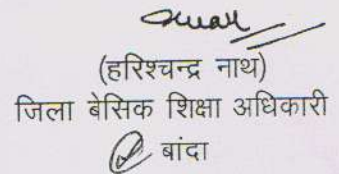 (हरिश्चन्द्र नाथ)
जिला बेसिक शिक्षा अधिकारी
बांदा